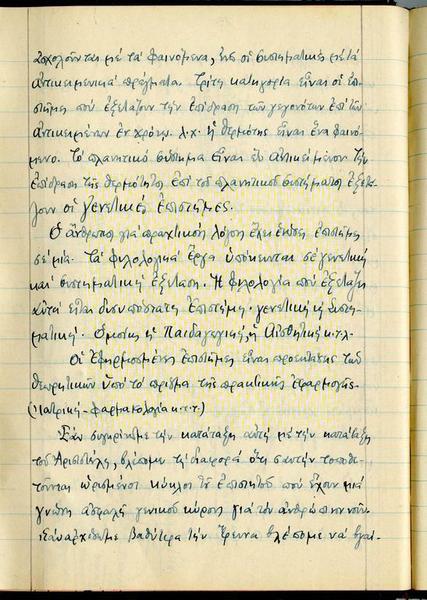 ἀσχολοῦνται μέ τά φαινόμενα, ἐνῶ οἱ συστηματικές μέ τά
ἀντικειμενικά πράγματα. Τρίτη κατηγορία εἶναι οἱ ἐπι-
στῆμες πού ἐξετάζουν τήν ἐπίδραση τῶν γεγονότων ἐπί τῶν
ἀντικειμένων ἐν χρόνῳ. λ.χ. ἡ θερμότης εἶναι ἕνα φαινό-
μενο. Τό πλανητικό σύστημα εἶναι ἕν ἀντικείμενον. Τήν
ἐπίδραση τῆς θερμότητος ἐπί τοῦ πλανητικοῦ συστήματος ἐξετά-
ζουν οἱ γενετικές ἐπιστῆμες.
Ὁ ἄνθρωπος γιά πρακτικούς λόγους ἑνώσεις ἐπιστῆμες
σέ μία. Τά φιλολογικά ἔργα ὑπόκεινται σέ γενετική
καί συστηματική ἐξέταση. Ἡ φιλολογία πού ἐξετάζει
αὐτά εἶναι δισυπόστατη ἐπιστήμη. γενετική καί συστη-
ματική. Ὁμοίως ἡ Παιδαγωγική, ἡ Αἰσθητική κ.τ.λ.
Οἱ Ἐφηρμοσμένες ἐπιστῆμες εἶναι προέκτασις τῶν
θεωρητικῶν ὑπό τό πρίσμα τῆς πρακτικῆς ἐφαρμογῆς.
(Ἰατρική - φαρμακολογία κ.τ.τ)
Ἐάν συγκρίνωμε τήν κατάταξη αὐτή μέ τήν κατάταξη
τοῦ Ἀριστοτέλη, βλέπομε τή διαφορά ὅτι σ' αὐτήν τοποθε-
τοῦνται ὡρισμένοι κύκλοι τοῦ ἐπιστητοῦ πού ἔχουν μιά
γνώση ἀσφαλῆ γενικοῦ κύρους γιά τόν ἄνθρωπινον νοῦν.
βαθύτερα τήν ἔρευνα βλέπομε νά βγαί-